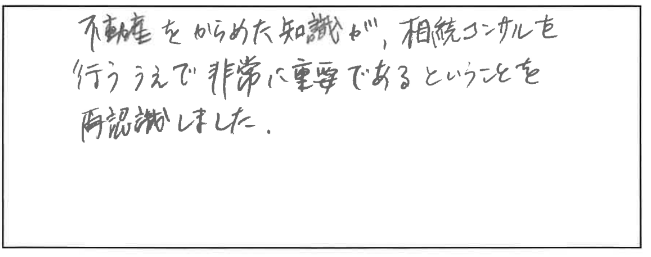 不動産をからめた知識が, 相続コンサルを
行ううえで非常に重要であるということを
再認識しました.